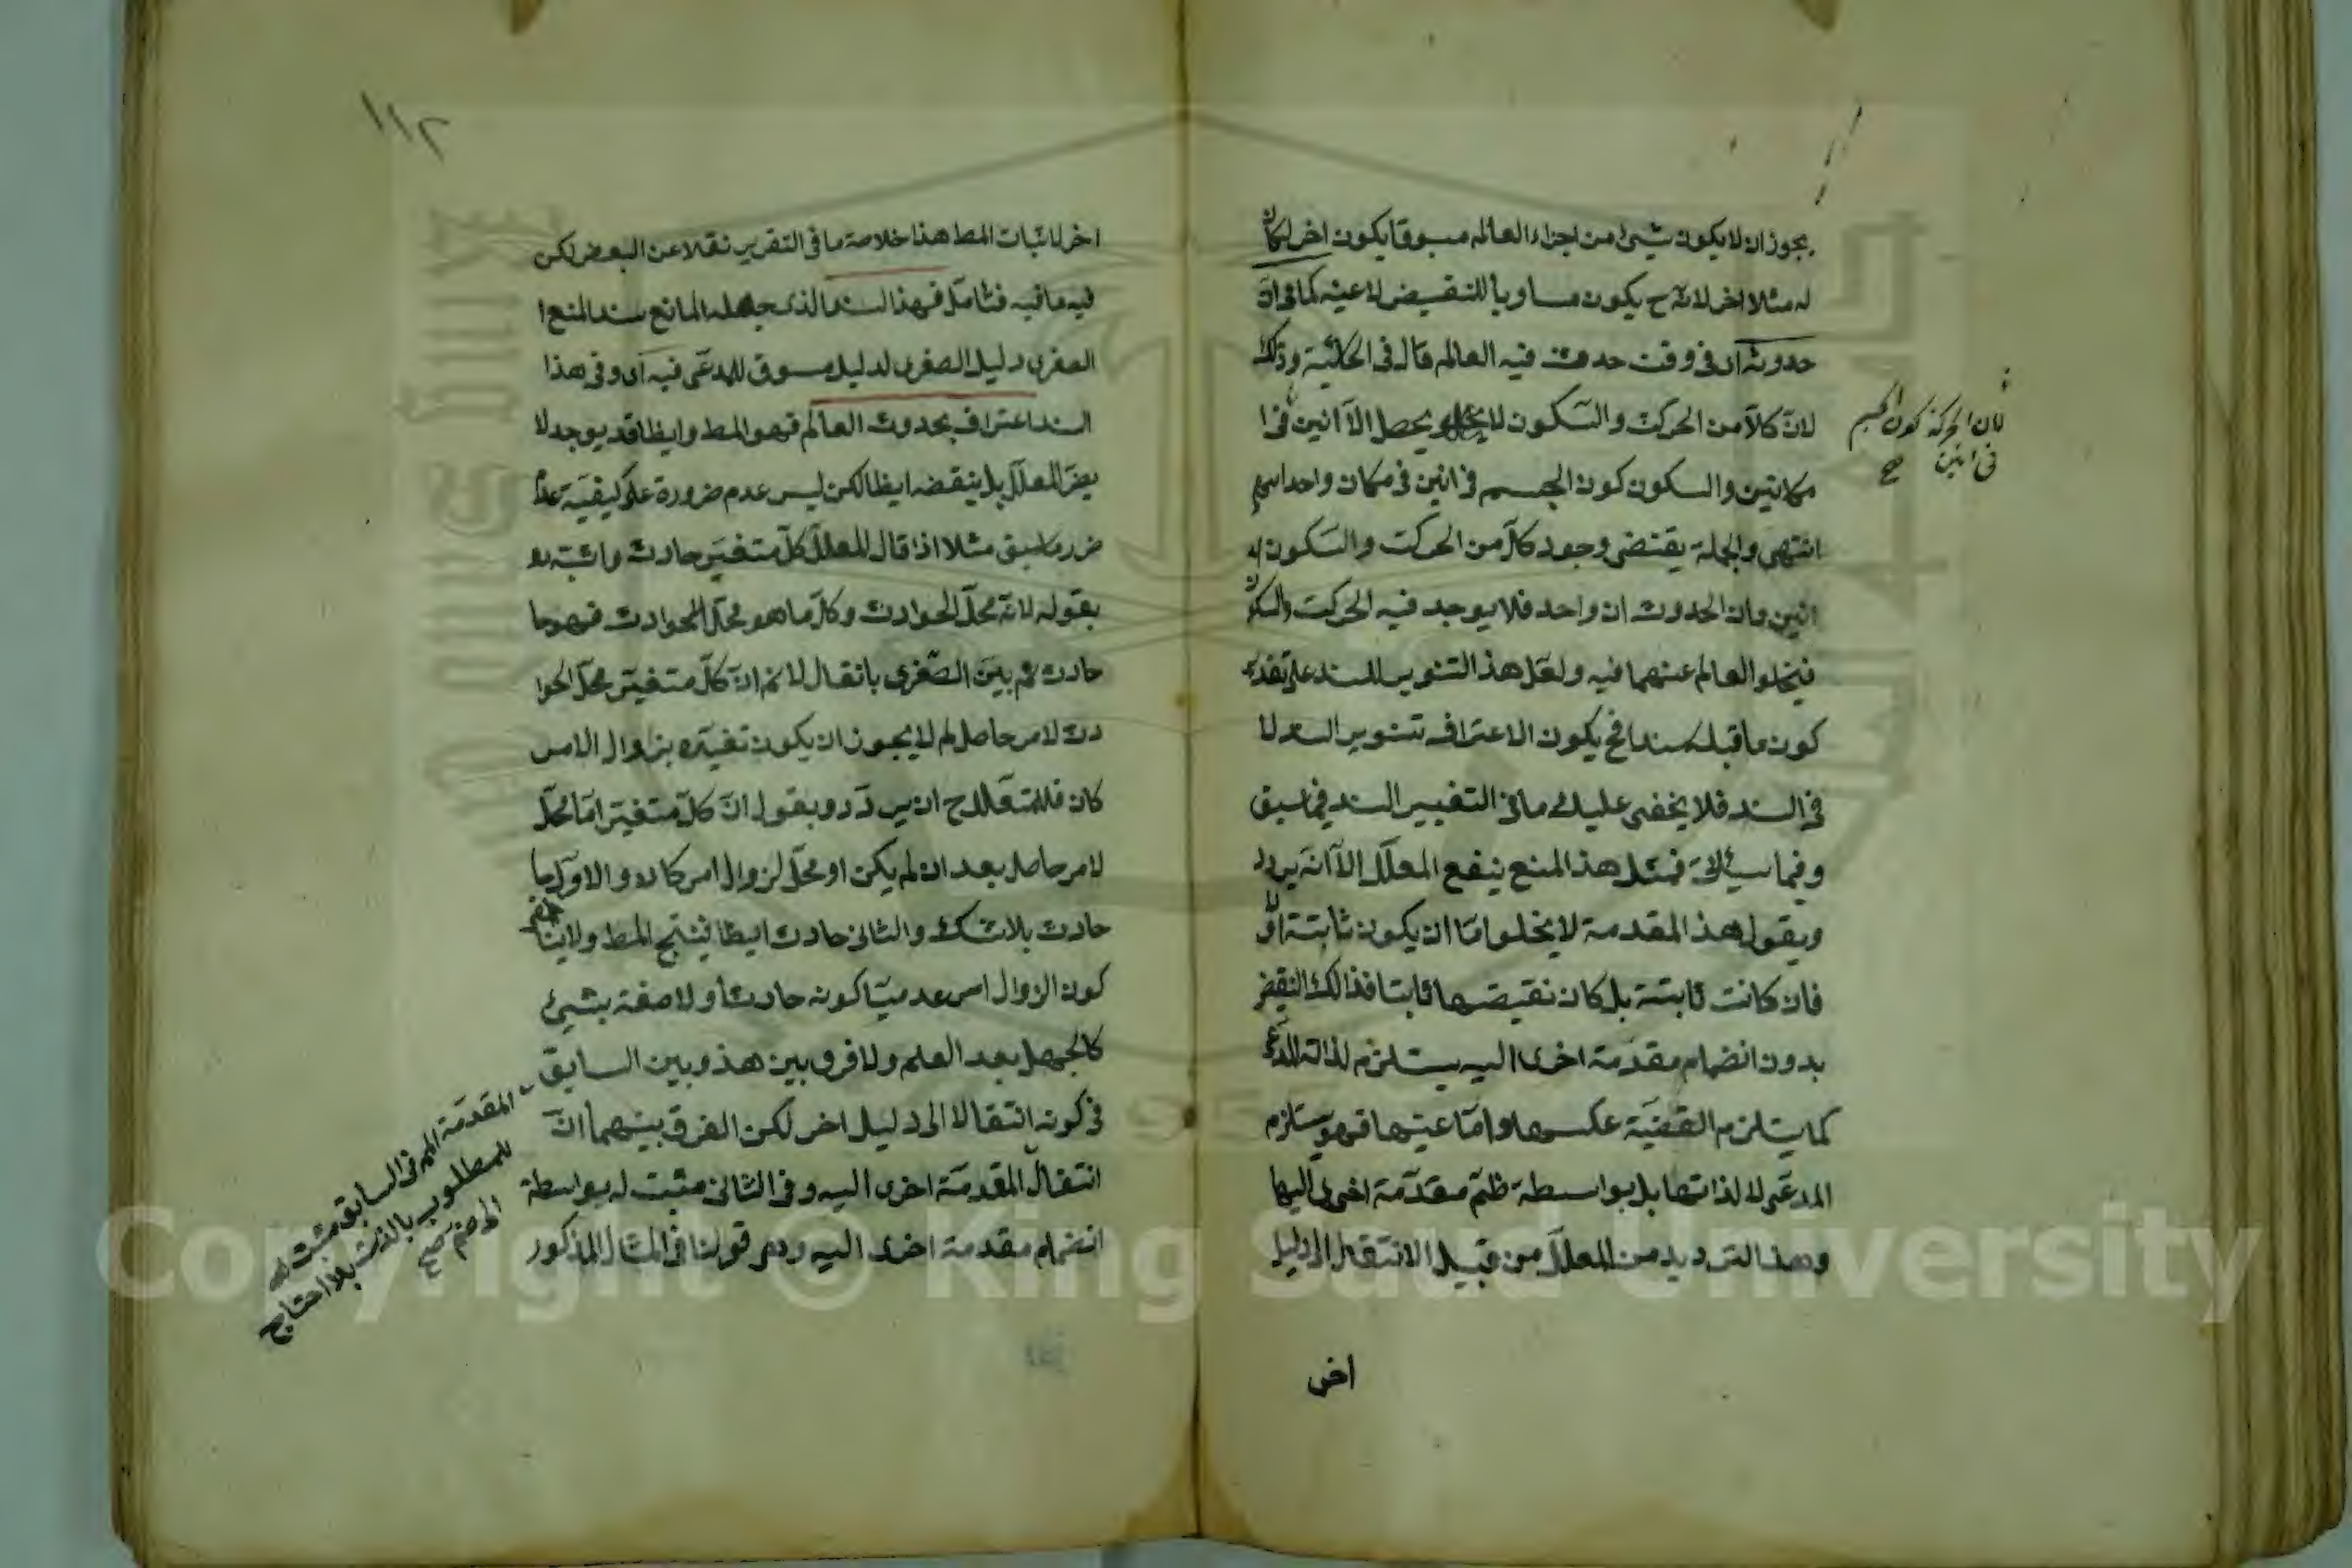 يجوز ان لا يكون شيئ من اجزاء العالم مسبوقا يكون اخر لكان
له مثلا اخر لانه ح يكون مساويا للنقيض لا عينه كما في ان
حدوثه اى فى وقت حدوث فيه العالم قال فى الحاشية وذلك
لان كلا من الحركت والسكون لا يحصل الا انين فى ا
مكانين والسكون كون الجسم فى انين فى مكان واحد
انتهى والجملة يقتضى وجود كل من الحركت والسكون
انين وان الحدوث ان واحد فلا يوجد فيه الحركت والسكون
فيخلو العالم عنهما فيه ولعل هذ التنوير للسند على تقدير
كون ما قبله سندا فح يكون الاعتراف تنوير السند لا
فى السند فلا يخفى عليك ما فى التغيير السند فيما سبق
وفيما سيأتى فمثل هذ المنع ينفع المعلل الا انه يردد
ويقول هذ المقدمة لا يخلو اما ان يكون ثابتة او لا
فان كانت ثابتة بل كان نقيضها ثابتا فذالك النقيض
بدون انضمام مقدمة اخرى اليه يستلزم لذاته المدعى
كما يستلزم القضية عكسها واما عينها فهو يستلزم
المدعى لا لذاتها بل بواسطة ظم مقدمة اخرى اليها
وهذ الترديد من المعلل من قبيل الانتقال الى دليل
اخر
لان الحركة كون الجسم
فى انين صح
١١٢
اخر لاثبات المط هذا خلاصة ما فى التقرير نقلا عن البعض لكن
فيه ما فيه فتامل فهذا السند الذى جعله المانع سند المنع ا
الصغرى دليل الصغرى لدليل مسوق للمدعى فيه اى وفى هذا
السند اعتراف بحدوث العالم فهو المط وايظا قد يوجد لا
يضر المعلل بل ينقضه ايظا لكن ليس عدم ضرورة على كيفية عدم
ضرر ما سبق مثلا اذا قال المعلل كل متغير حادث واثبته
بقوله لانه محل الحوادث وكل ما هو محل الحوادث فهو حا
حادث ثم بين الصغرى بانقال لا نم ان كل متغير محل الحوا
دث لامر حاصل لم لا يجوز ان يكون تغيره بزوال الامر
كان فللمتعلل ح ان يردد ويقول ان كل متغير اما محل
لامر حاصل بعد ان لم يكن او محل لزوال امر كان والاول حا
حادث بلا شك والثانى حادث ايظا فينتج المط ولا ينافى
كون الزوال امر عدميا كونه حادثا ولا صفة بشيئ
كالجهل بعد العلم ولا فرق بين هذ وبين السابق
فى كونه انتقالا الى دليل اخر لكن الفرق بينهما ان
انتقال المقدمة اخرى اليه وفى الثانى مثبت له بواسطة
انضمام مقدمة اخرى اليه وهو قولنا فى المثال المذكور
المقدمة فى السابق مثبت له
للمطلوب بالذات بلا احتاج
الى ضم صح
Copyright © King Saud University